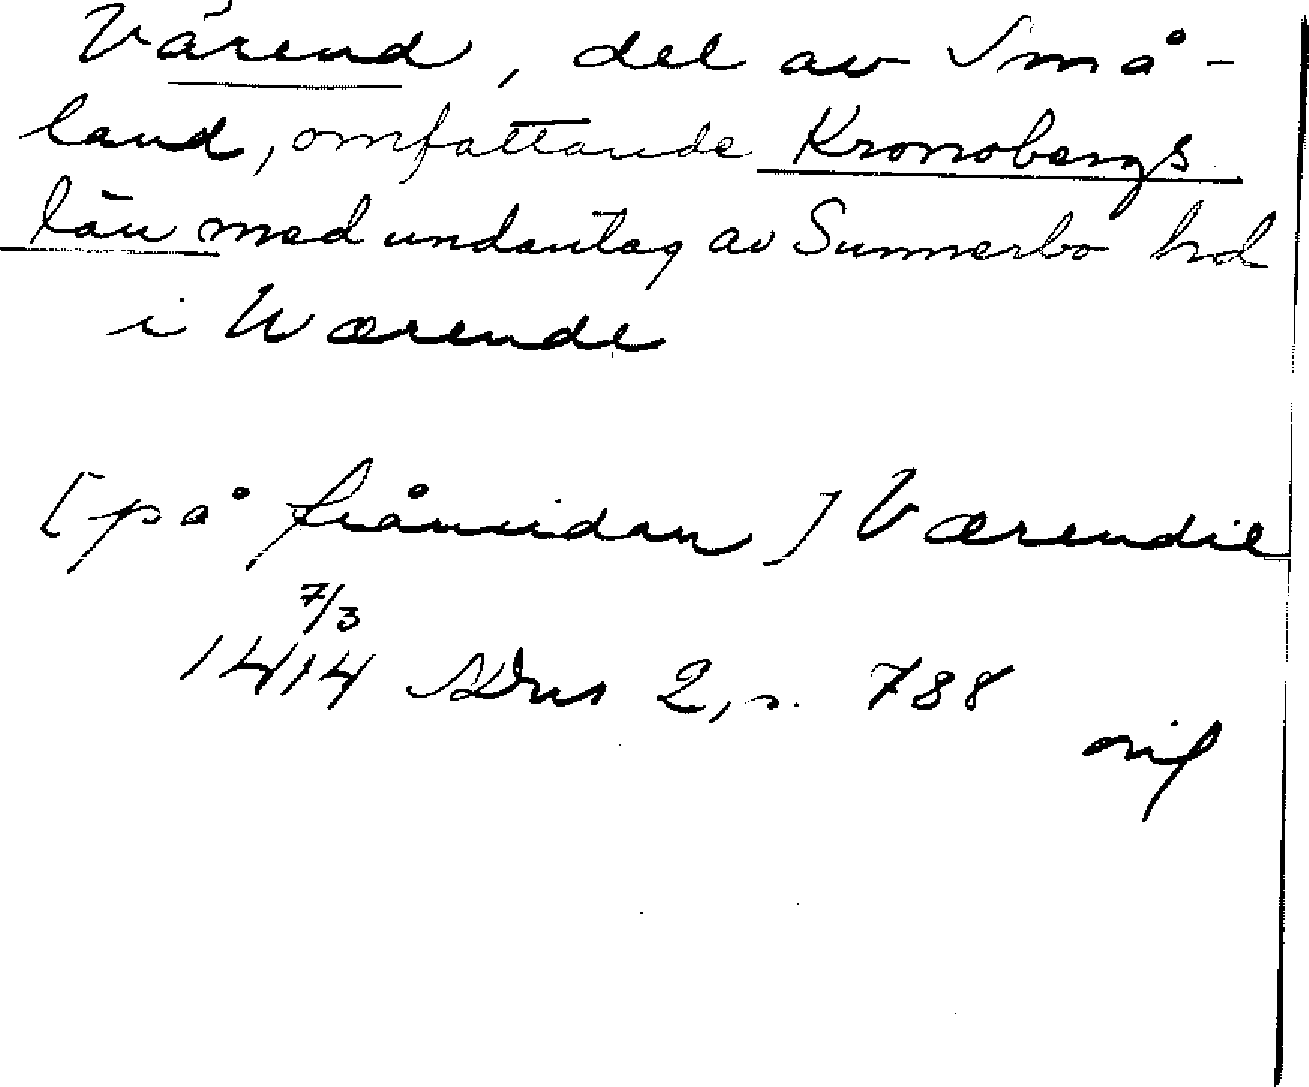 Värend, del av Små-
land, omfattande Kronobergs
län med undantag av Sunnerbo hd
i Wærende
[på frånsidan] Værendie
7/3
1414 SDns 2, s. 788